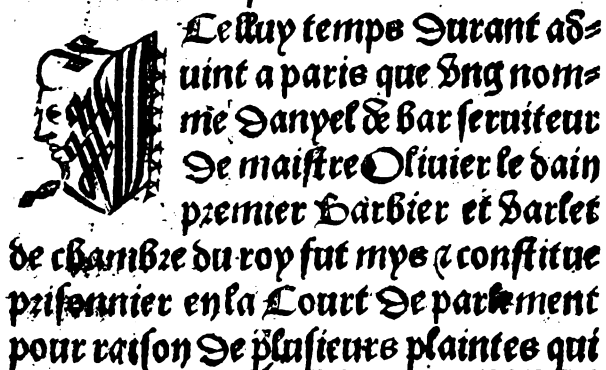 Icelluy temps durant ad⸗
uint a paris que vng nom⸗
me danyel de bar seruiteur
de maistre Oliuier le dain
premier barbier et varlet
de chambre du roy fut mys ⁊ constitue
prisonnier en la Court de parlement
pour raison de plusieurs plaintes qui